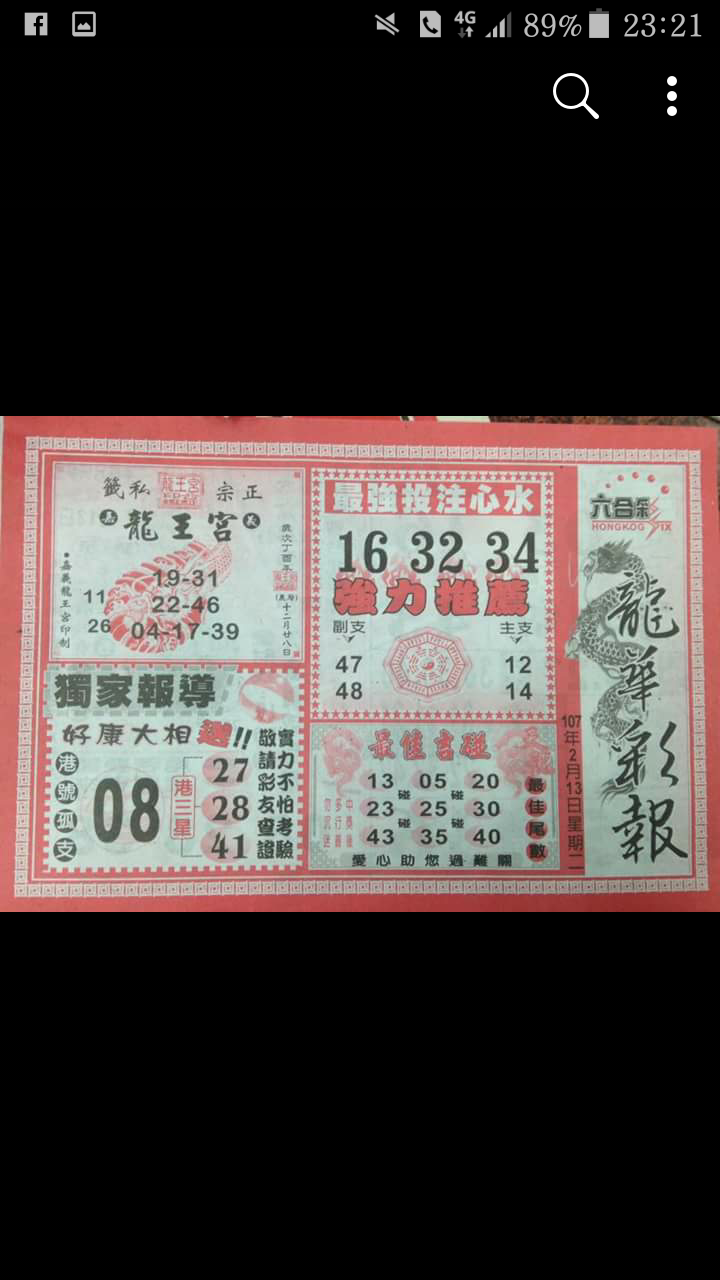 4G 89% 23:21
籤私 龍王宮 宗正
嘉 龍王宮 義
歲次丁酉年
(農曆)十二月廿八日
•嘉義龍王宮印制
19-31
11 22-46
26 04-17-39
最強投注心水
16 32 34
強力推薦
副支 主支
47 12
48 14
獨家報導
好康大相送!!
港號孤支
08
港三星
27
28
41
敬請彩友查證
實力不怕考驗
最佳吉碰
13 05 20
碰 碰
23 25 30
碰 碰
43 35 40
最佳尾數
愛心助您過難關
107年2月13日星期二
六合彩
HONGKOG SIX
龍華彩報